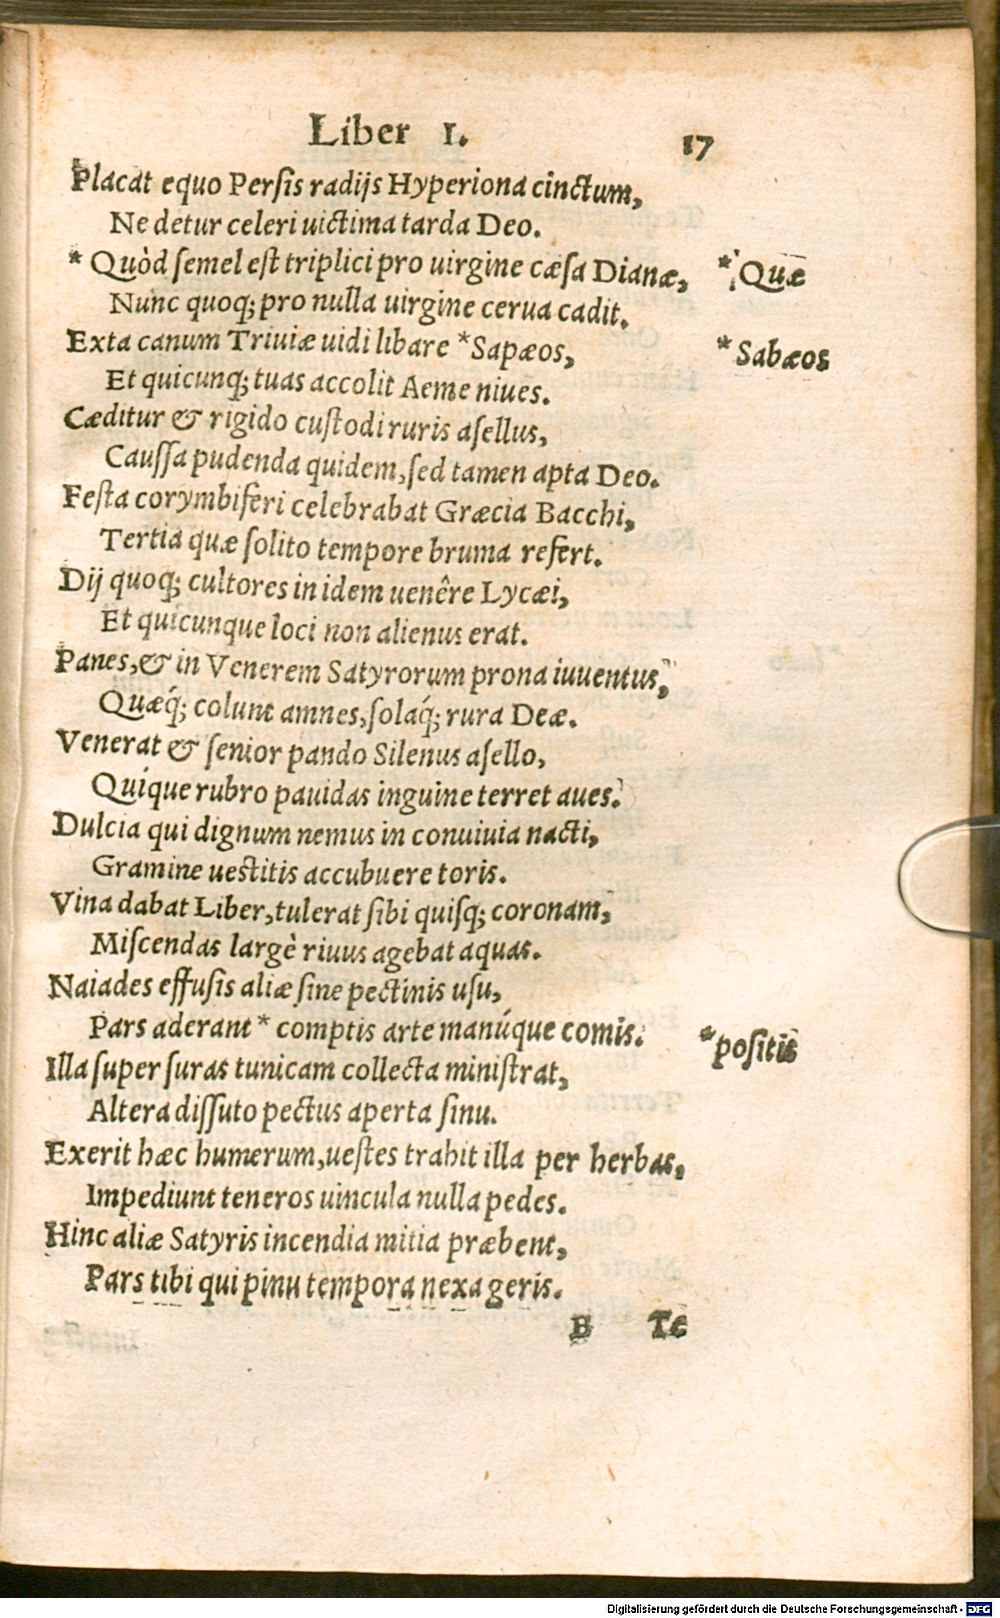 Liber I. 17
Placat equo Persis radijs Hyperiona cinctum,
Ne detur celeri uictima tarda Deo.
* Quòd semel est triplici pro uirgine cæsa Dianæ, * Quæ
Nunc quoq; pro nulla uirgine cerua cadit.
Exta canum Triuiæ uidi libare *Sapæos, * Sabæos
Et quicunq; tuas accolit Aeme niues.
Cæditur & rigido custodi ruris asellus,
Caussa pudenda quidem, sed tamen apta Deo.
Festa corymbiferi celebrabat Græcia Bacchi,
Tertia quæ solito tempore bruma refert.
Dij quoq; cultores in idem uenêre Lycæi,
Et quicunque loci non alienus erat.
Panes, & in Venerem Satyrorum prona iuuentus,
Quæq́; colunt amnes, solaq́; rura Deæ.
Venerat & senior pando Silenus asello,
Quique rubro pauidas inguine terret aues.
Dulcia qui dignum nemus in conuiuia nacti,
Gramine uestitis accubuere toris.
Vina dabat Liber, tulerat sibi quisq; coronam,
Miscendas largè riuus agebat aquas.
Naiades effusis aliæ sine pectinis usu,
Pars aderant * comptis arte manúque comis. * positis
Illa super suras tunicam collecta ministrat,
Altera dissuto pectus aperta sinu.
Exerit hæc humerum, uestes trahit illa per herbas,
Impediunt teneros uincula nulla pedes.
Hinc aliæ Satyris incendia mitia præbent,
Pars tibi qui pinu tempora nexa geris.
B Te
Digitalisierung gefördert durch die Deutsche Forschungsgemeinschaft - DFG